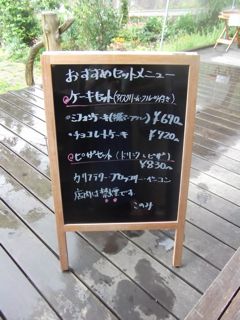 おすすめセットメニュー
ケーキセット(アイスクリーム・フルーツ付き)
・シフォンケーキ ¥690
・チョコレートケーキ ¥720
ピザセット(ドリンク・ピザ)
¥830
ブロッコリー・ベーコン
店内は禁煙です
このみ